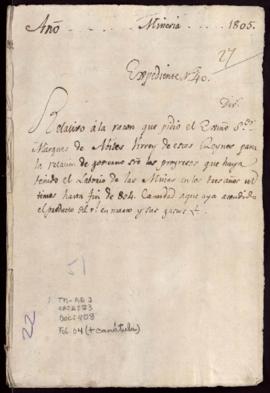 Año Mineria 1805.
27
Expediente N.º 40.
Relativo á la razon que pidió el Exmo S.or
Marques de Aviles Virrey de estos Reynos para
la relacion de govierno sre los progresos que haya
tenido el Laborio de las Minas en los tres años ul
timos hasta fin de 804. Cantidad aque aya asendido
el producto del r.l en marco y sus gastos
51
TM-AE 2
DOC 408
Fol 04 (+ carátula)
22